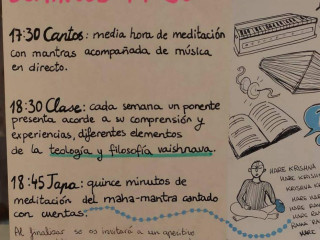 17:30 Cantos: media hora de meditación
con mantras acompañada de música
en directo.
18:30 Clase: cada semana un ponente
presenta acorde a su comprensión y
experiencias, diferentes elementos
de la teología y filosofía vaishnava.
18:45 Japa: quince minutos de
meditación del maha-mantra cantado
con cuentas.
Al finalizar se os invitará a un aperitivo
HARE KRISHNA
HARE KRISHNA
KRISHNA
HARE
HARE RAMA
HARE RAMA
RAMA RA
HARE